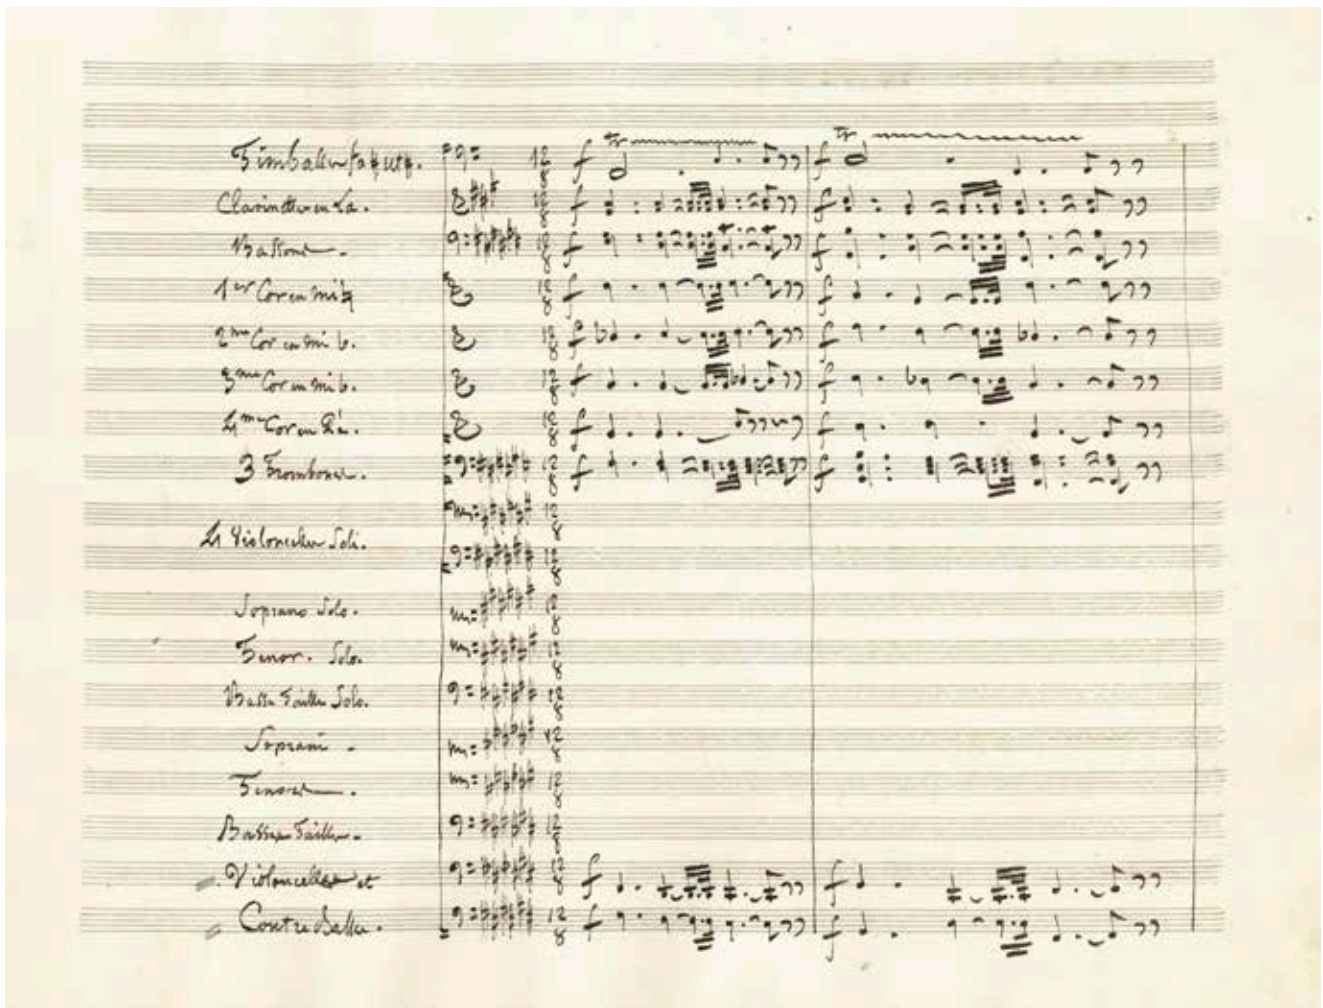 Timballes fa# ut#.
Clarinettes en La.
Bassons.
1er Cor en mi♮
2me Cor en mi b.
3me Cor en mi b.
4me Cor en Ré.
3 Trombones.
4 Violoncelles Soli.
Soprano Solo.
Tenor. Solo.
Basse Taille Solo.
Soprani.
Tenori.
Basses Tailles.
Violoncelles et
Contre Basses.